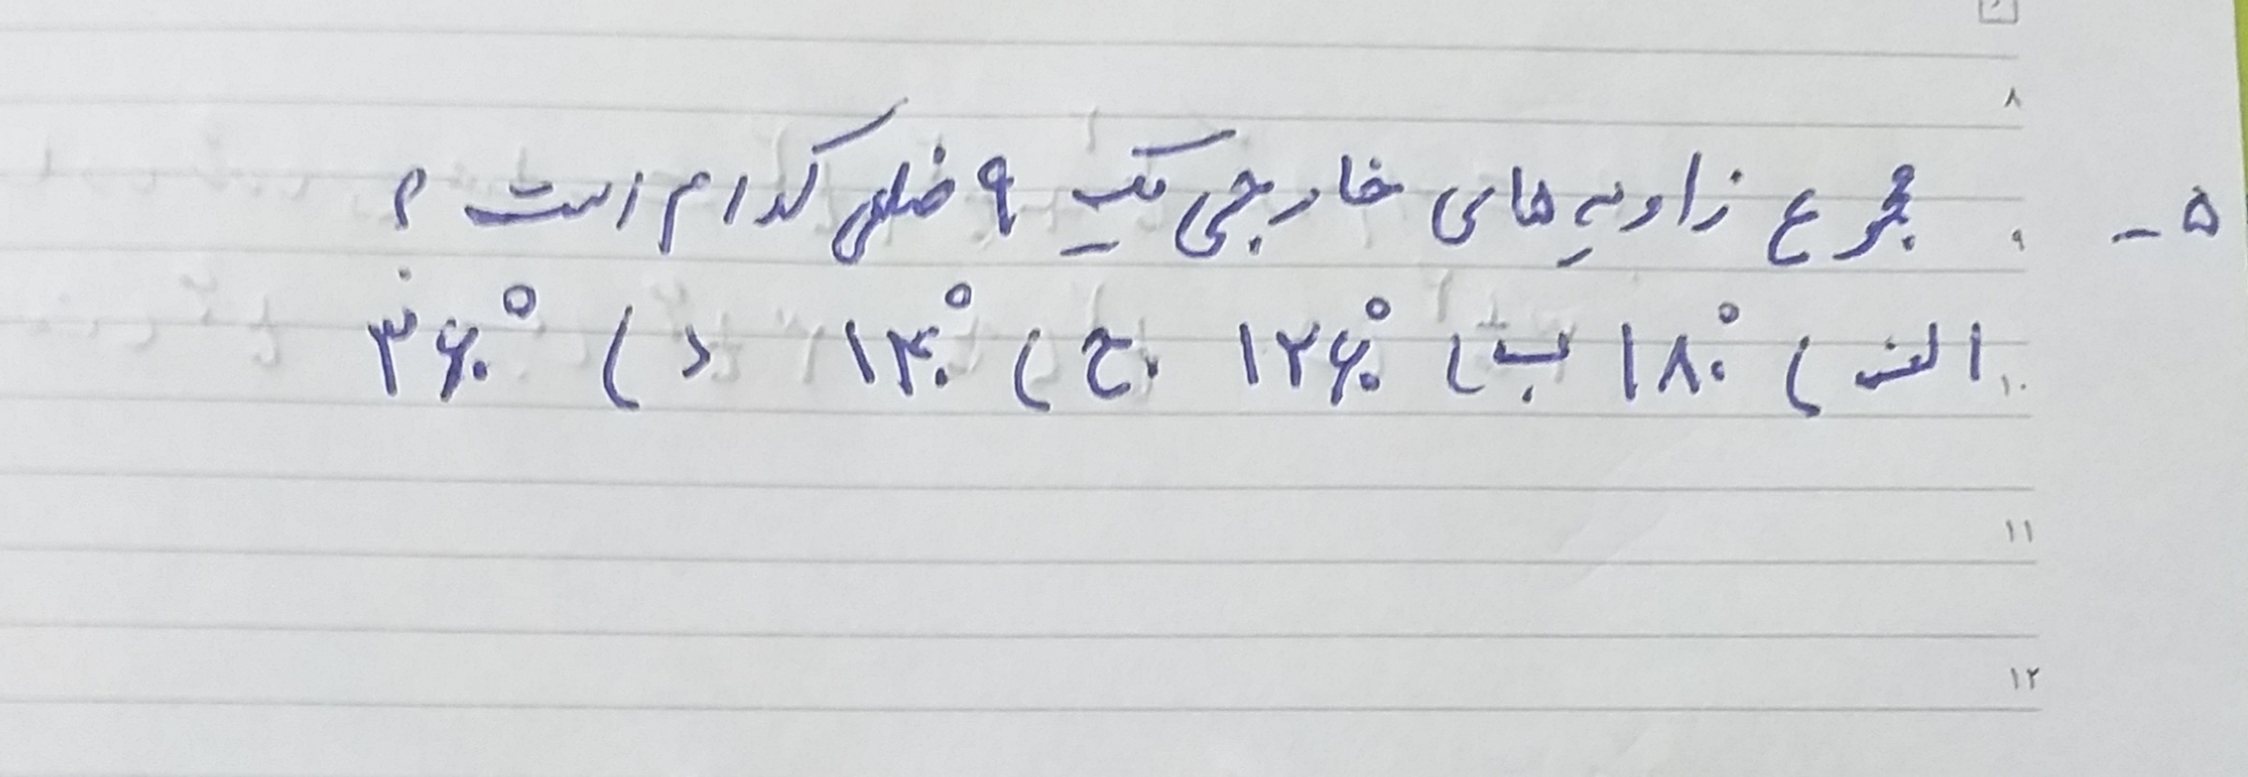 ۸
۵ - مجموع زاویه های خارجی یک ۹ ضلعی کدام است ؟
۹
الف ) ۱۸۰° ب ) ۱۲۶۰° ج ) ۱۴۰° د ) ۳۶۰°
۱۰
۱۱
۱۲